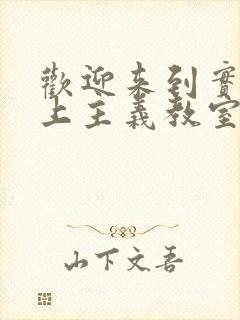 歡迎来到實
上主義教室
山下文吾